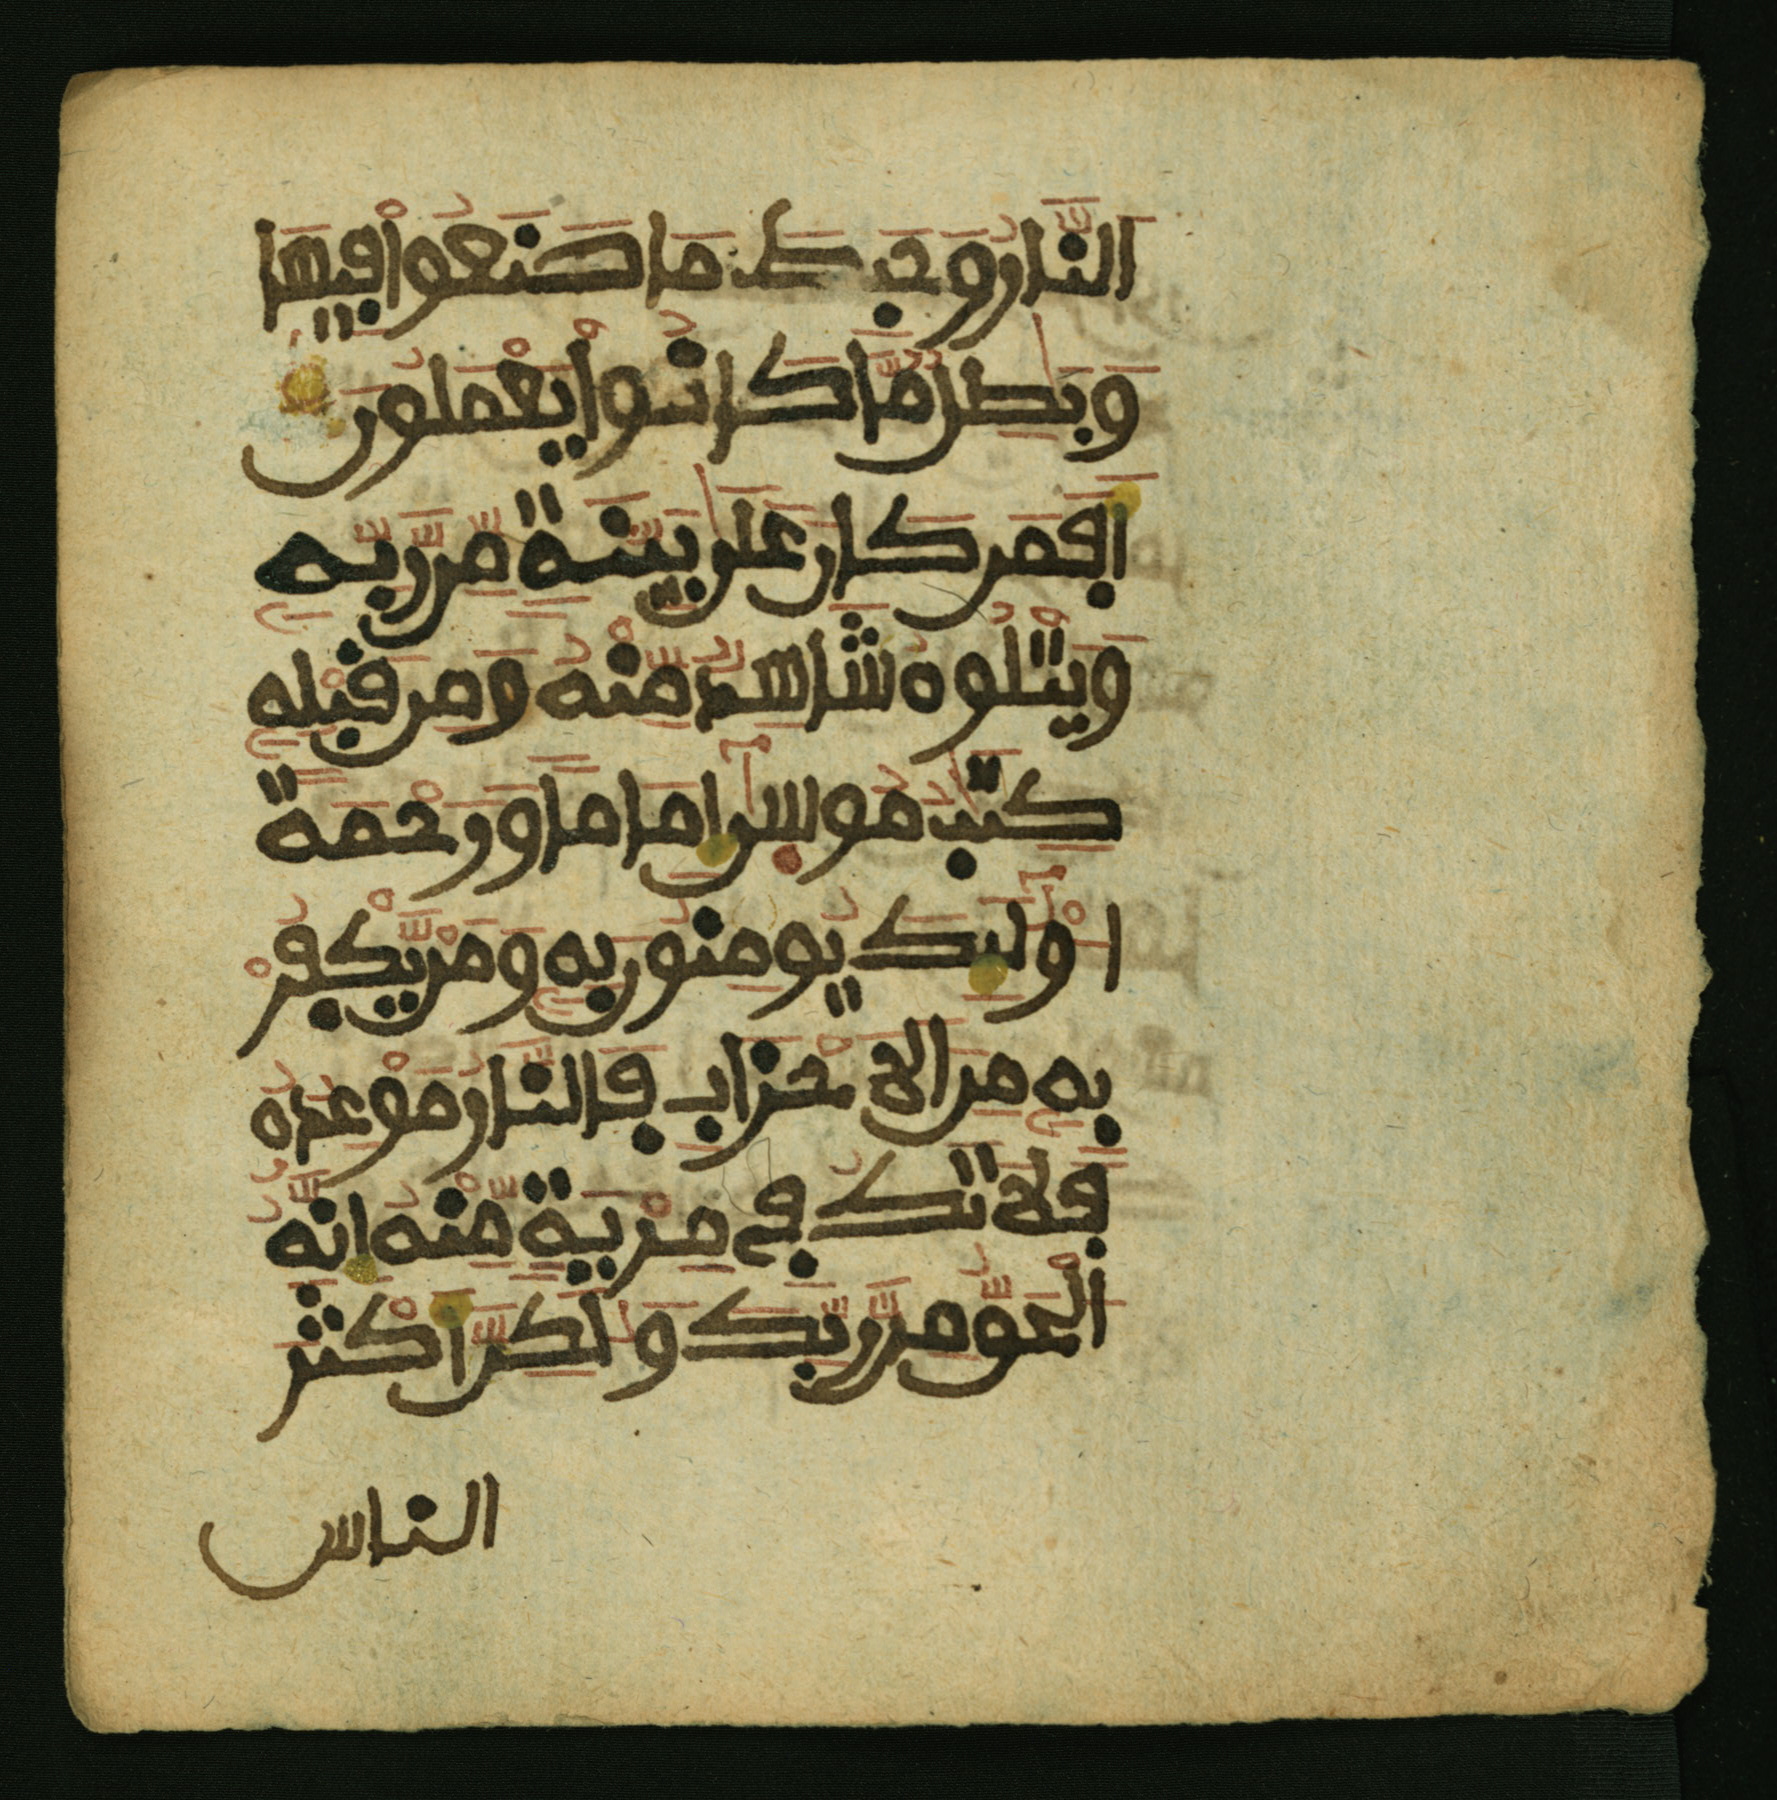 النَّارُ وَحَبِطَ مَا صَنَعُواْ فِيهَا
وَبَٰطِلٌ مَّا كَانُواْ يَعْمَلُونَ
أَفَمَن كَانَ عَلَىٰ بَيِّنَةٍ مِّن رَّبِّهِ
وَيَتْلُوهُ شَاهِدٌ مِّنْهُ وَمِن قَبْلِهِ
كِتَٰبُ مُوسَىٰ إِمَامًا وَرَحْمَةً
اوْلَٰٓئِكَ يُومِنُونَ بِهِ وَمَنْ يَّكْفُرْ
بِهِ مِنَ الَاحْزَابِ فَالنَّارُ مَوْعِدُهُ
فَلَا تَكُ فِي مِرْيَةٍ مِّنْهُ إِنَّهُ
الْحَقُّ مِن رَّبِّكَ وَلَٰكِنَّ أَكْثَرَ
الناس